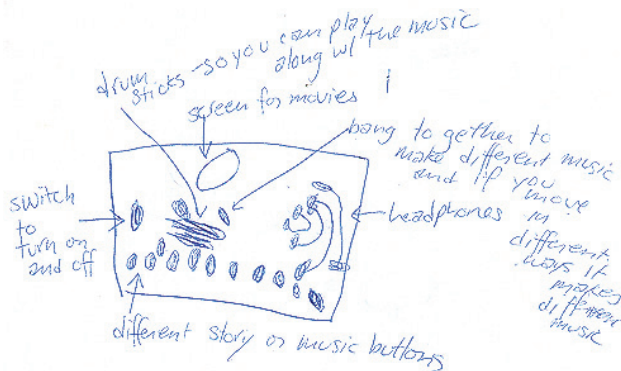 drum sticks - so you can play
along w/ the music
screen for movies
bang to gether to
make different music
and if you
move
in
different
ways it
makes
different
music
switch
to
turn on
and off
headphones
different story or music buttons